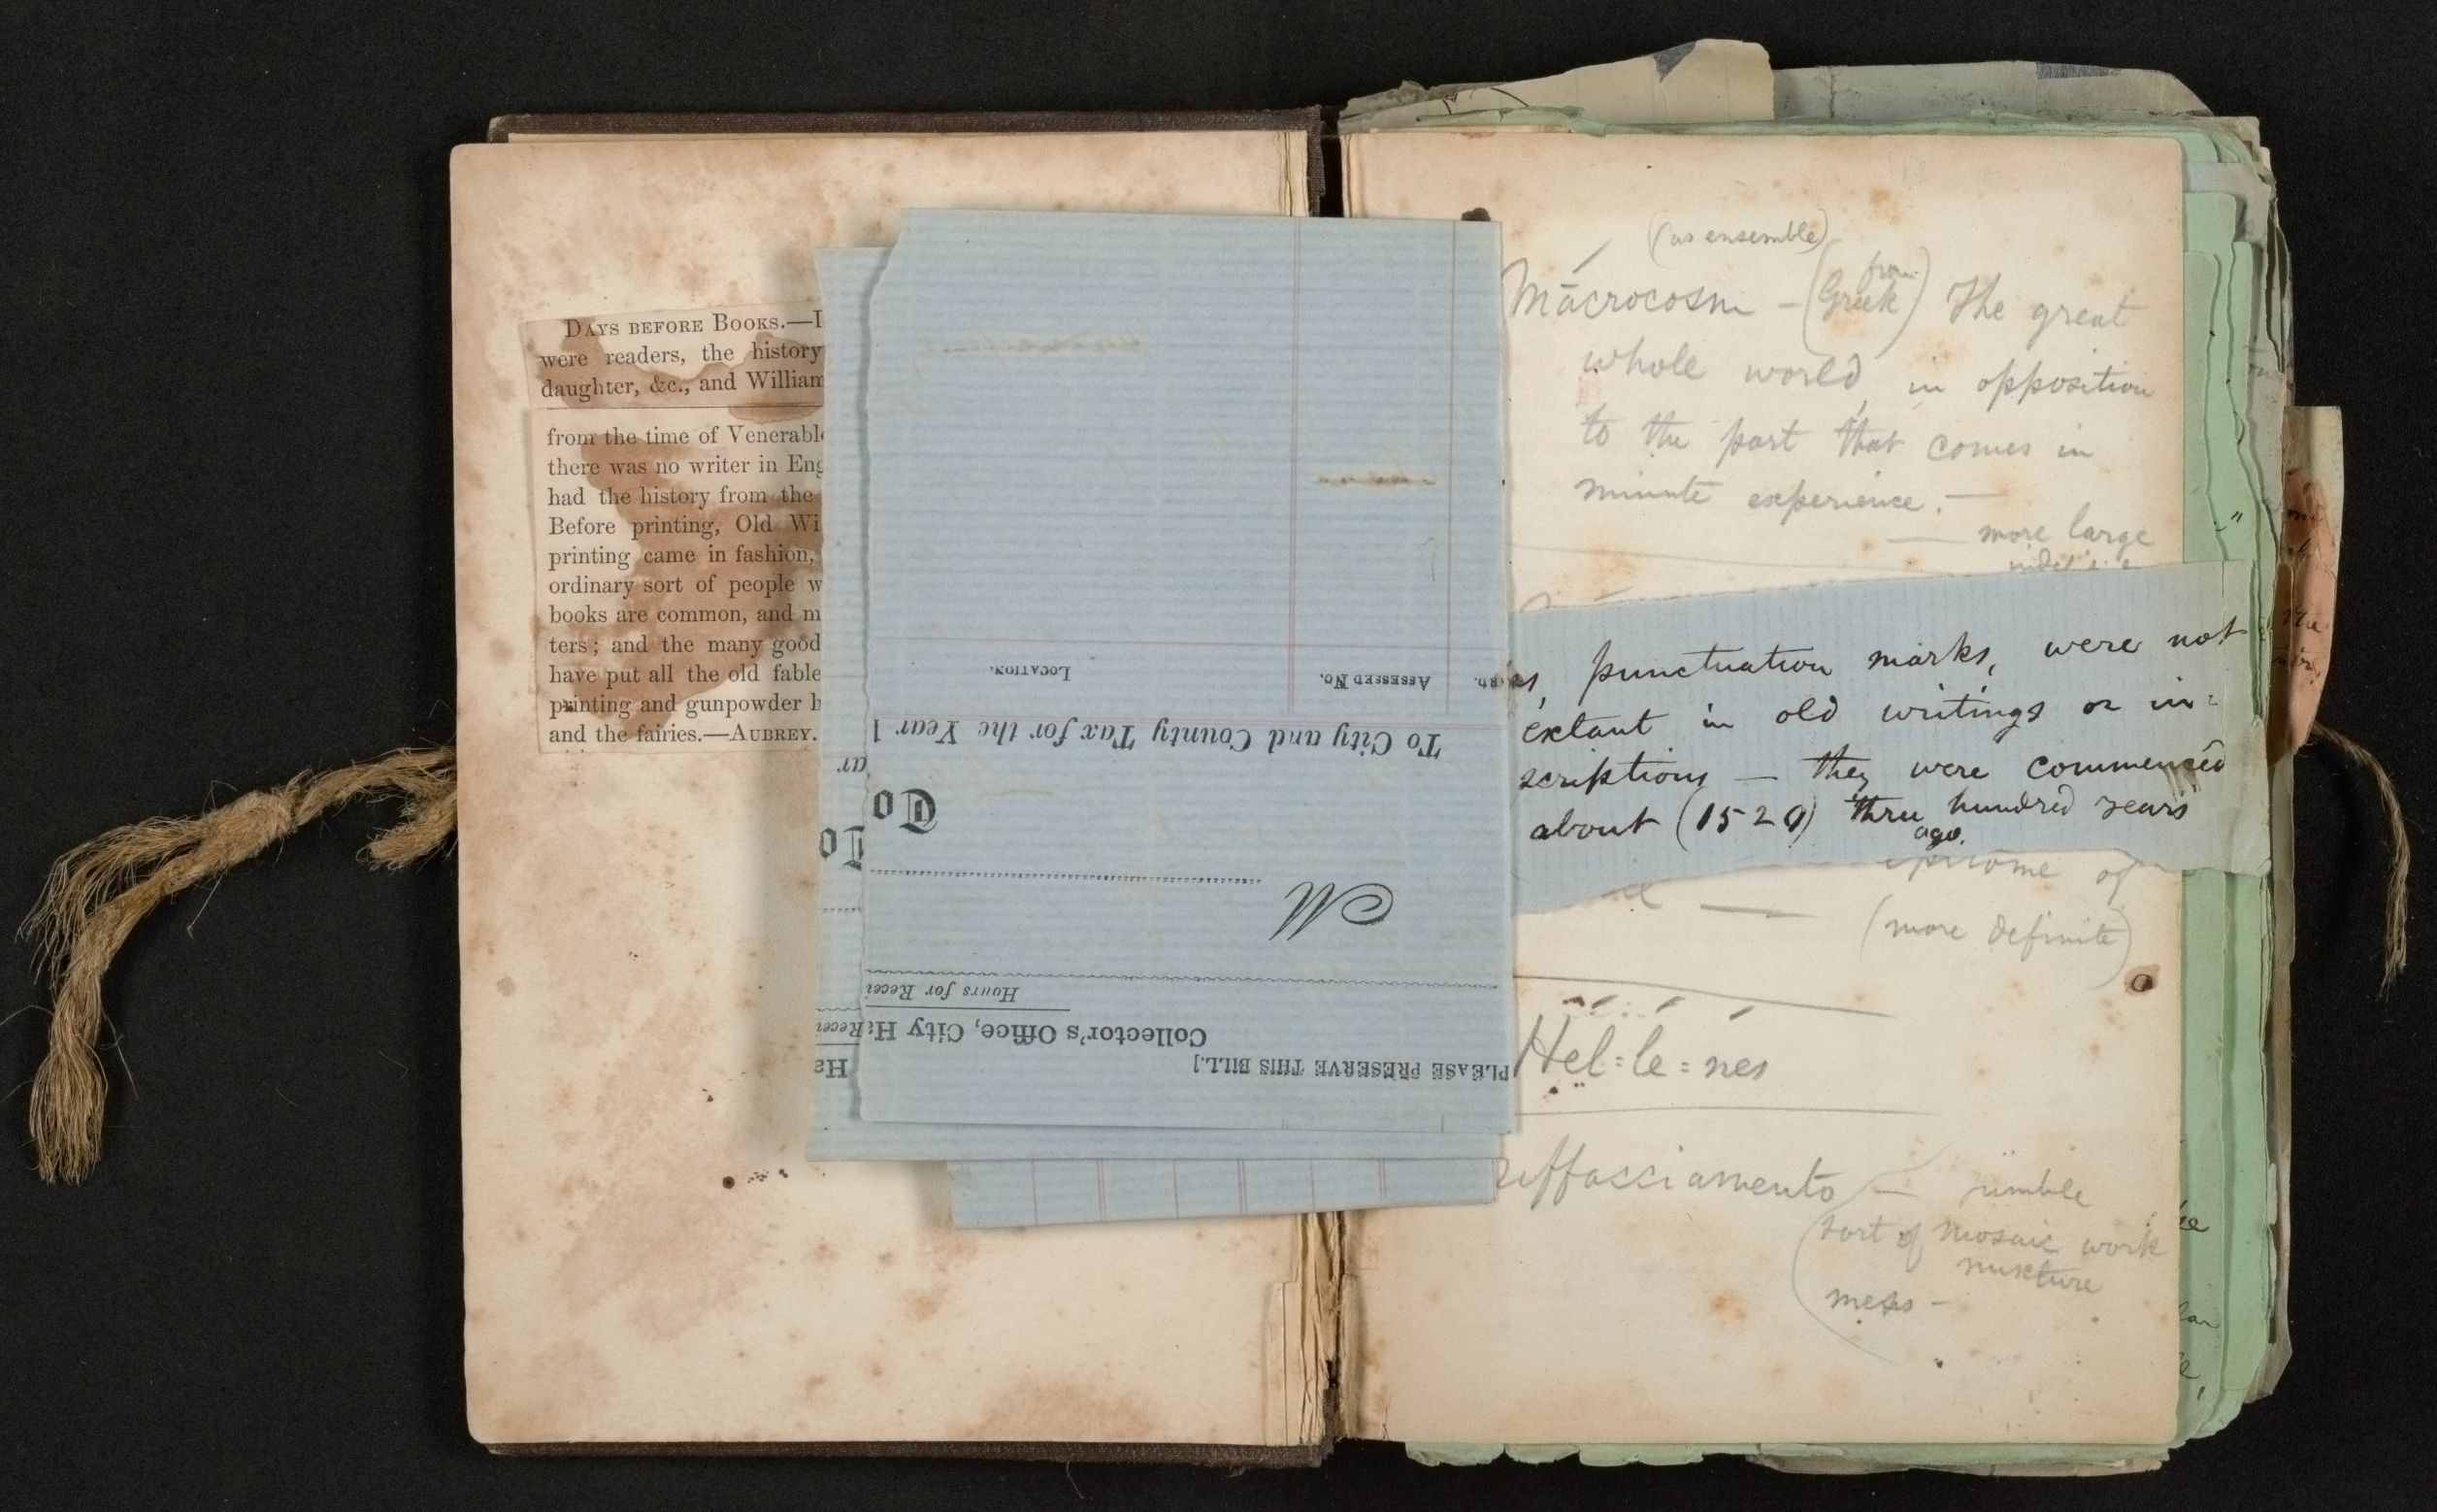 DAYS BEFORE BOOKS.—I
were readers, the history
daughter, &c., and William
from the time of Venerabl
there was no writer in Eng
had the history from the
Before printing, Old Wi
printing came in fashion,
ordinary sort of people w
books are common, and m
ters; and the many good
have put all the old fable
printing and gunpowder h
and the fairies.—AUBREY.
PLEASE PRESERVE THIS BILL.]
Collector's Office, City Ha
Hours for Recei
M
To
To City and County Tax for the Year 1
ASSESSED NO.
LOCATION.
Ha
Recei
To
ar
(as ensemble)
Macrocosm — (from Greek) The great
whole world, in opposition
to the part that comes in
minute experience. —
— more large
punctuation marks, were not
extant in old writings or in-
scriptions — they were commenced
about (1520) three hundred years
ago.
epitome of
(more definite)
Hel-le-nes
riffacciamento — jumble
sort of mosaic work
mixture
mess —